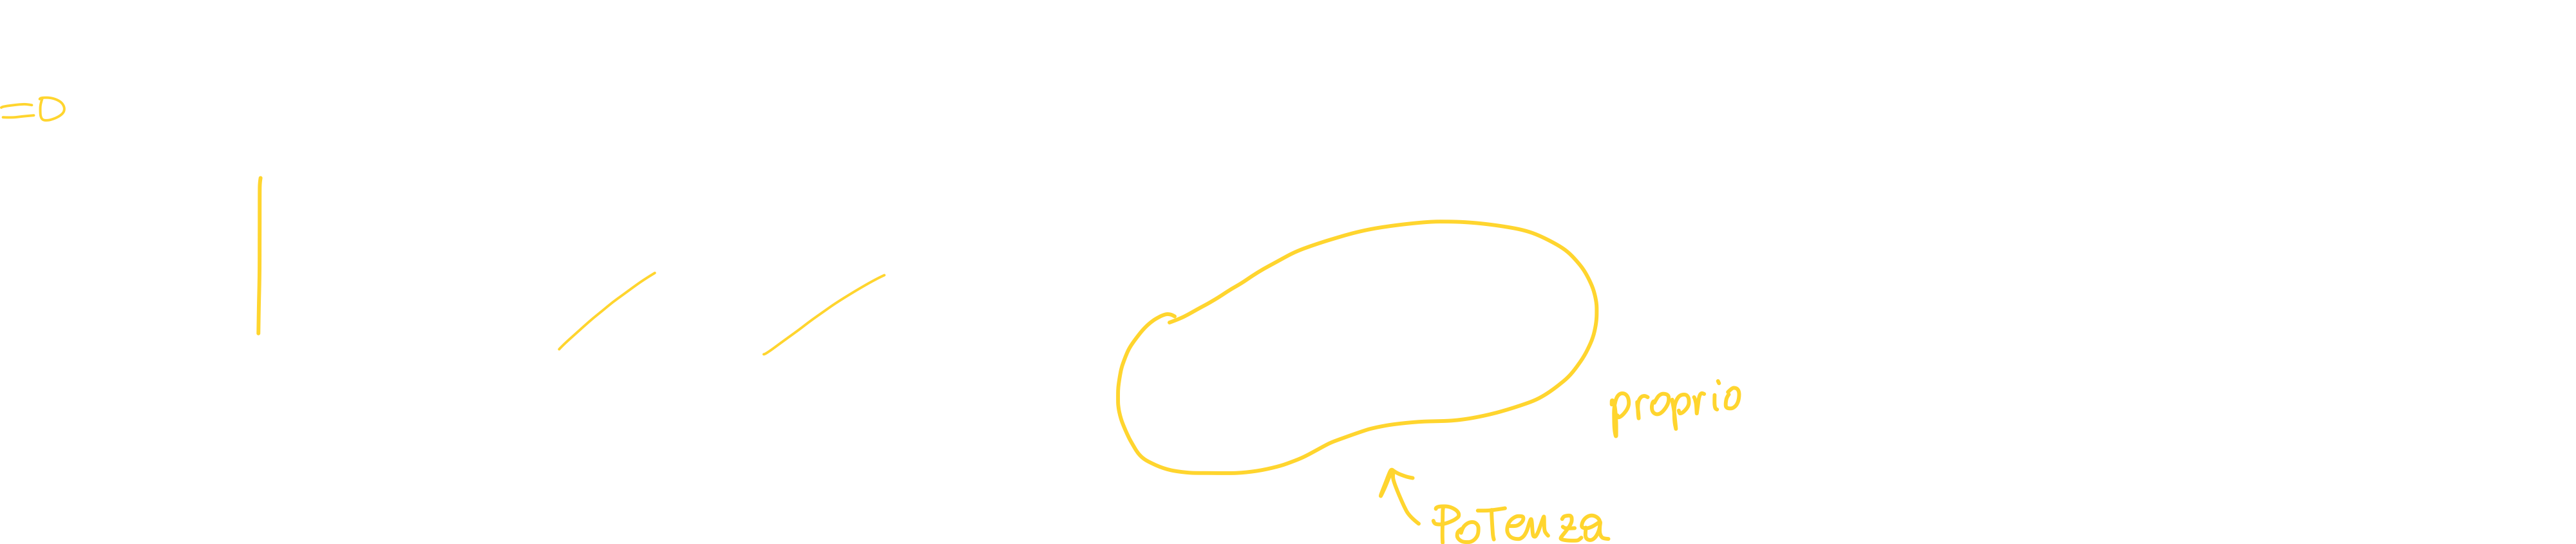 =D
proprio
Potenza